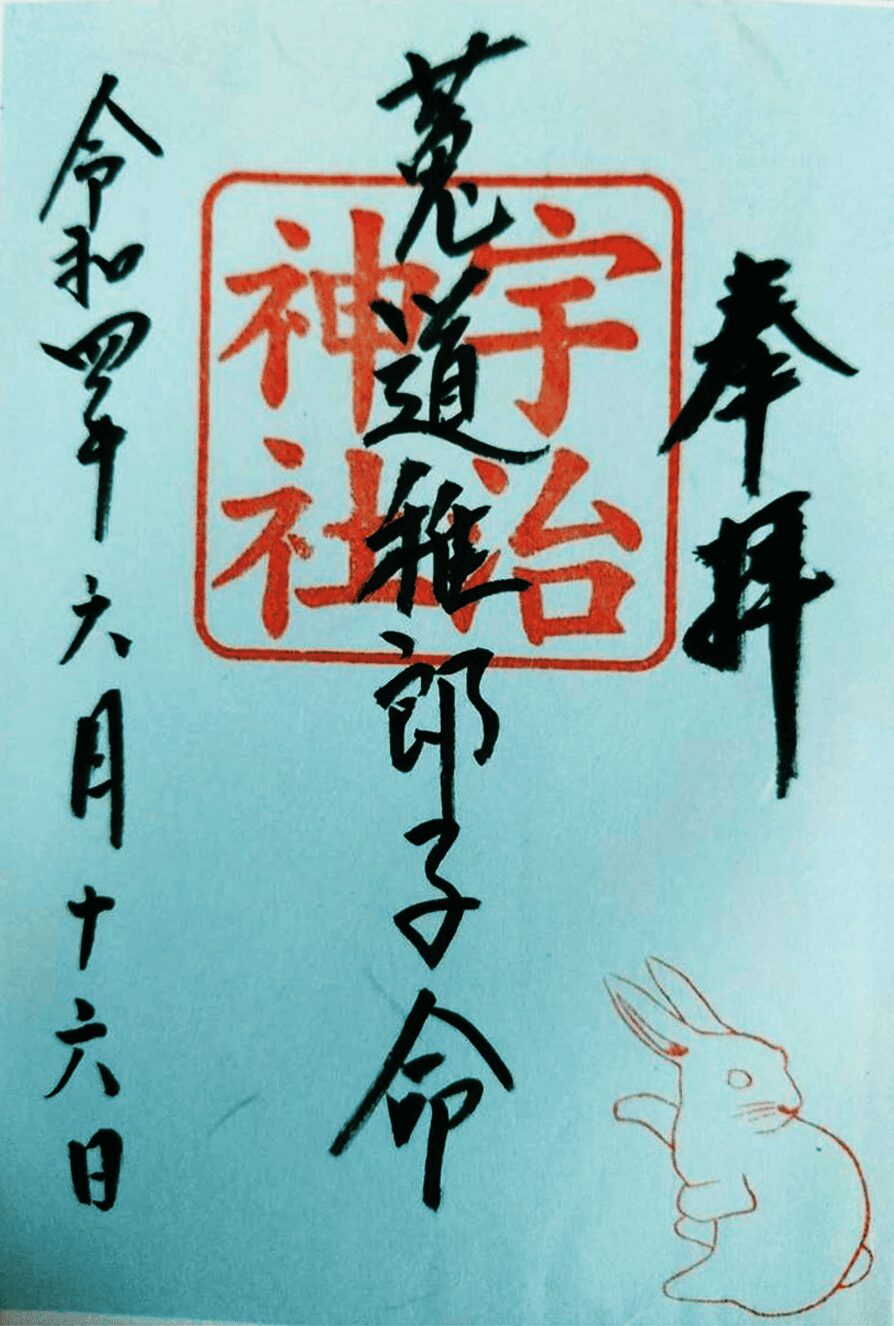 奉拝
宇治
神社
菟道稚郎子命
令和四年六月十六日